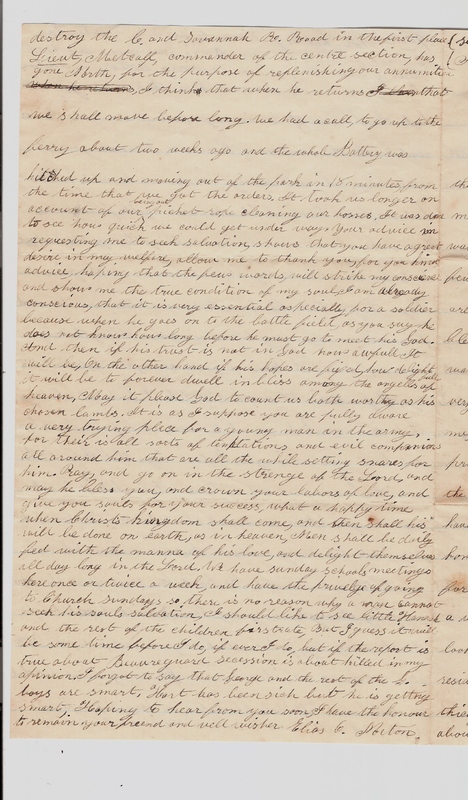 destroy the C, and Savannah Ro. Rooad in the first place
Lieut, Metcalf, commander of the centre section, has
gone North, for the purpose of replenishing our ammunition
I think that when he returns that
we shall move before long. We had a call, to go up to the
ferry about two weeks ago and the whole Battery was
hitched up and moving out of the park in 15 minutes, from
the time that we got the orders. It took us longer on
account of our being at picket rope cleaning our horses. It was done
to see how quick we could get under way. Your advice in
requesting me to seek salvation, shows that you have a great
desire in my welfare, allow me to thank you, for you kind
advice, hoping that the few words, will strike my conscience
and show me the true condition of my soul, I am already
conscious, that it is very essential especially, for a soldier
because when he goes on to the battle field, as you say he
does not know how long before he must go to meet his God.
And then if his trust is not in God how awfull It
will be, On the other hand if his hopes are fixed, how delightfull
it will be to forever dwell in bliss among the angells of
heaven, May it please God to count us both worthy as his
chosen lambs. It is as I suppose you are fully aware
a very trying place for a young man in the army,
for their is all sorts of temptations and evil companions
all around him that are all the while setting snares for
him. Pray, and go on in the strenge of the Lord, and
may he bless you, and crown your labors of love, and
give you souls for your success, what a happy time
when Christs kingdom shall come, and then shall his
will be done on earth, as in heaven, then shall be daily
feed with the manna of his love, and delight themselves
all day long in the Lord. We have sunday schools meetings
here once or twice a week, and have the privelige of going
to Church sundays so, there is no reason why a man cannot
seek his souls salvation, I should like to see little Hannah
and the rest of the children first rate, But I guess it will
be some time before I do, if ever I do, but if the report is
true about Beaureguard secession is about killed in my
opinion. I forgot to say that George and the rest of the L.
boys are smart, Hort has been sick but he is getting
smart, Hoping to hear from you soon, I have the honour
to remain your freend and well wisher Elias C. Horton.